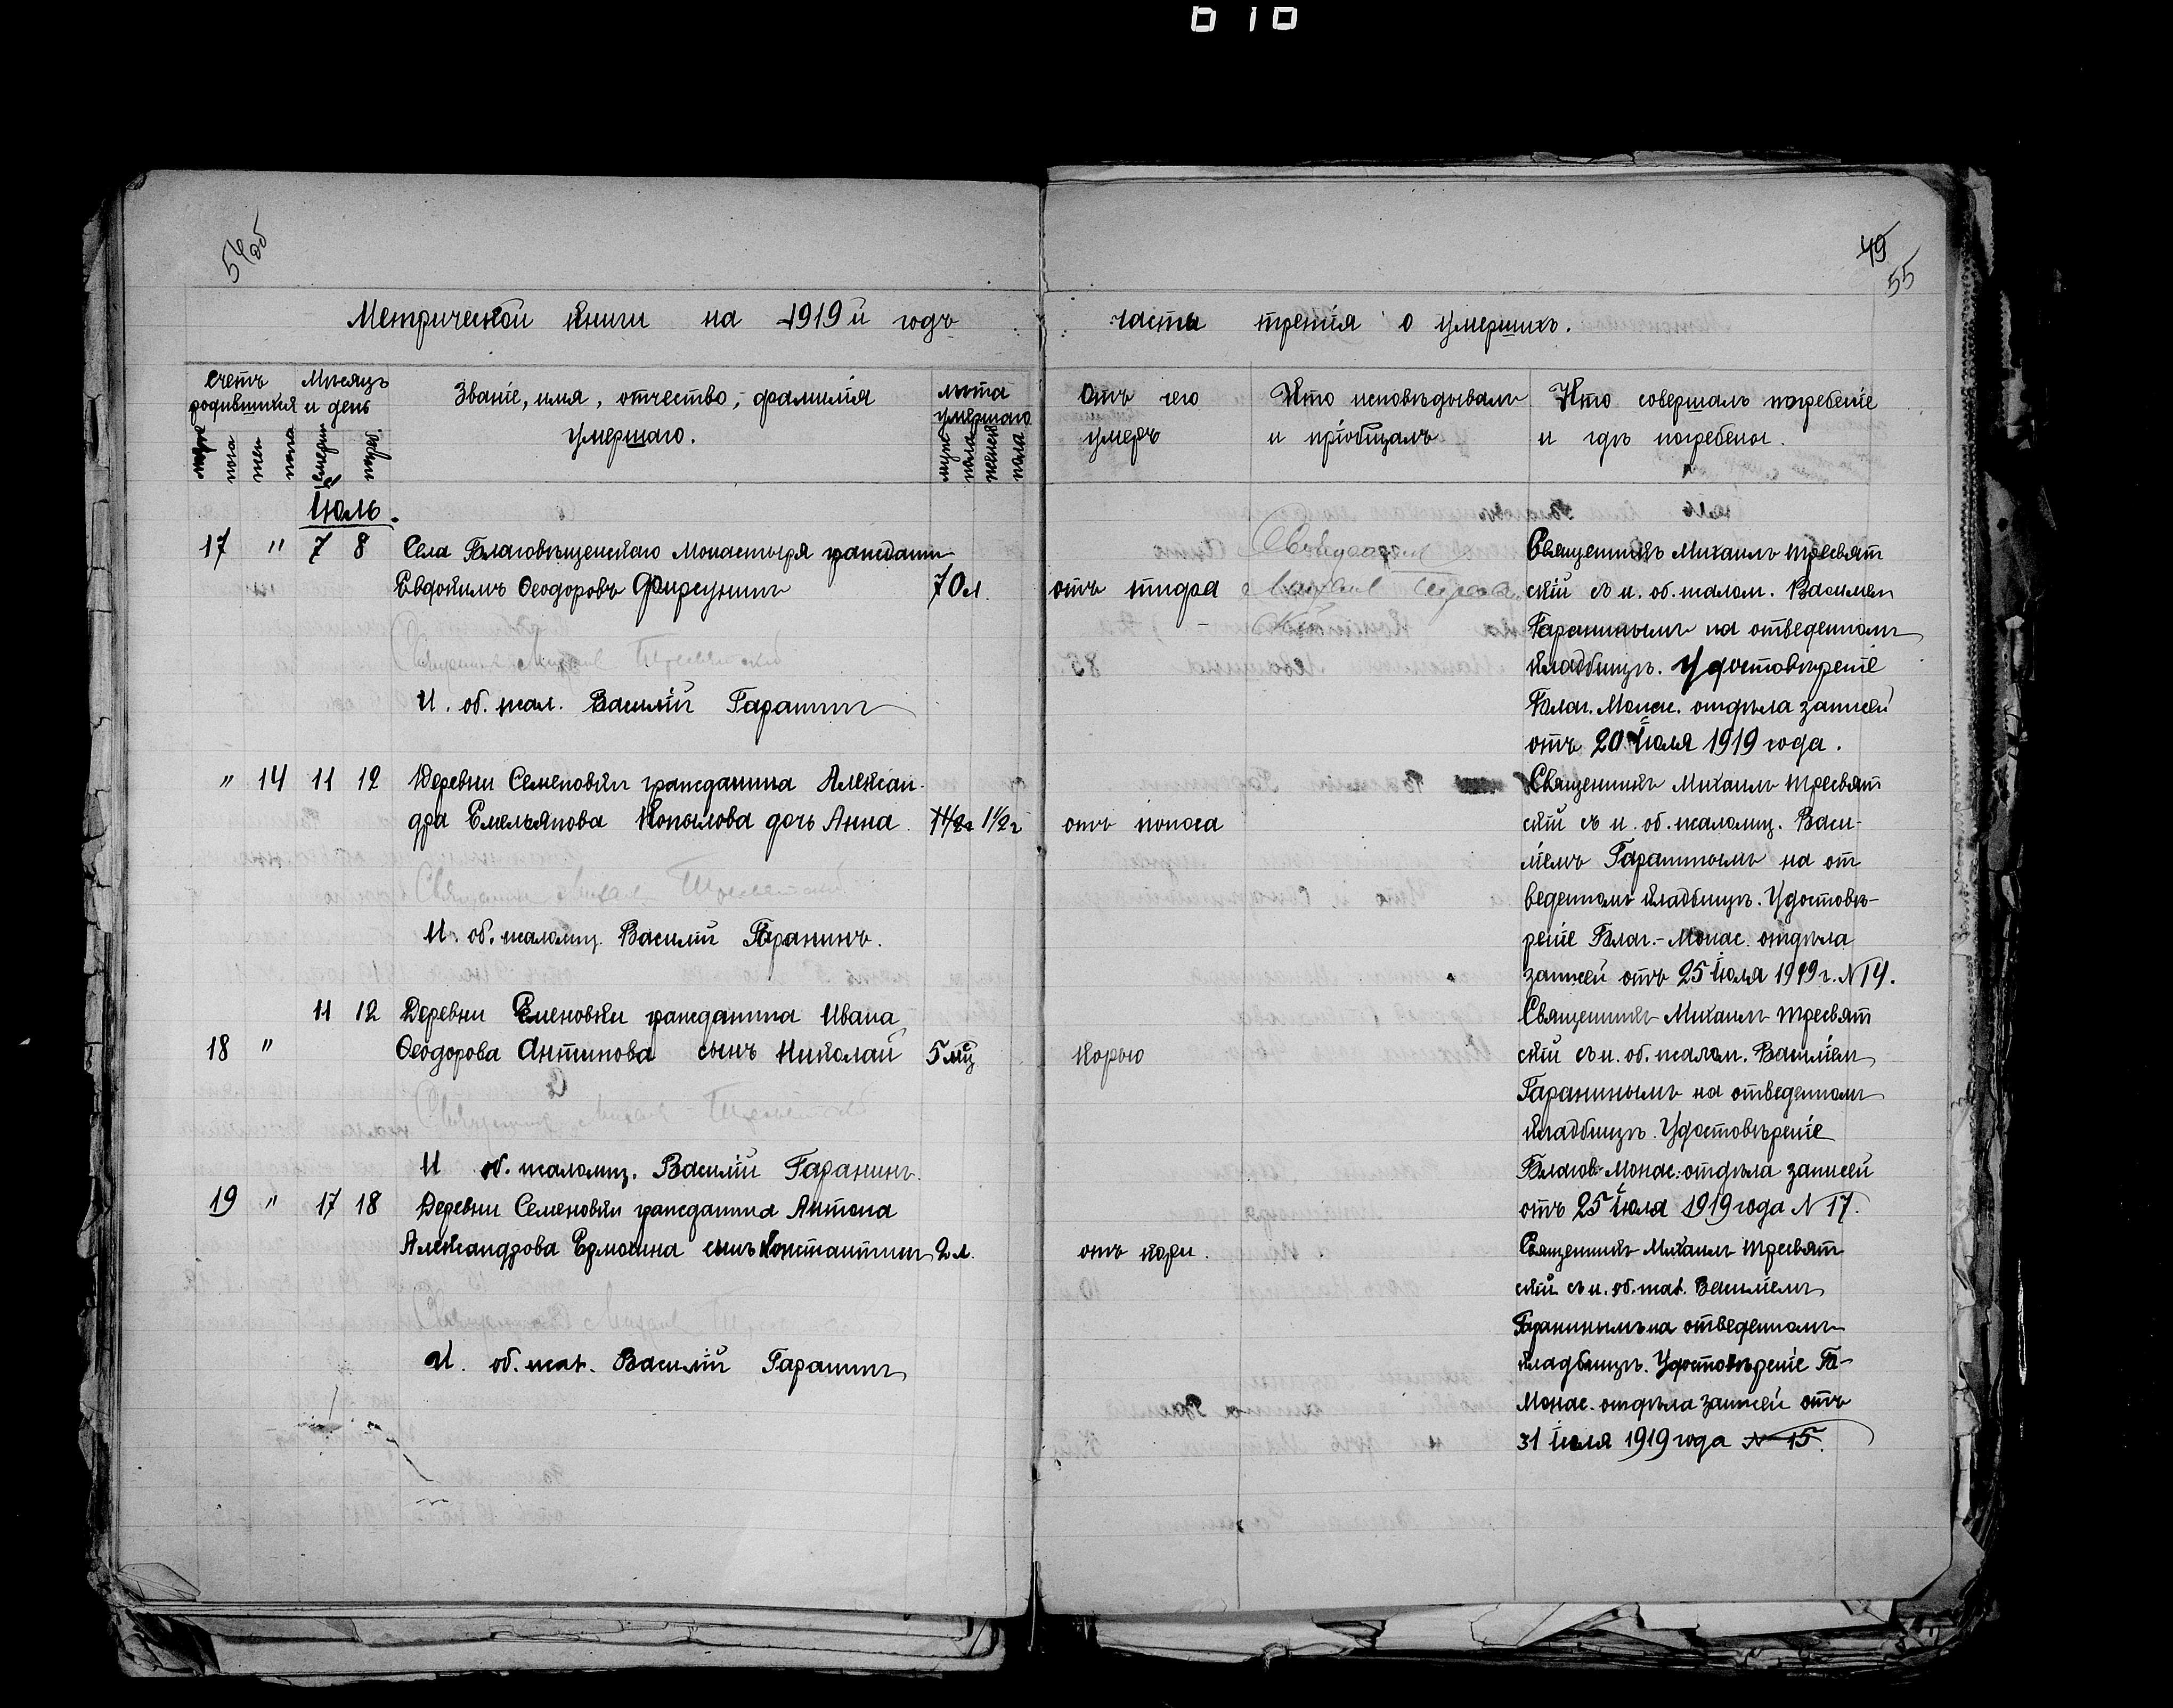 54об
49
55
Метрической книги на 1919й годъ
часть третія о умершихъ.
Счетъ родившихся
Мѣсяцъ и день
Званіе, имя, отчество, фамилія умершаго.
Лѣта умершаго
муж пола
женск пола
Отъ чего умеръ
Кто исповѣдывалъ и пріобщалъ
Кто совершалъ погребеніе и гдѣ погребены.
Іюль.
17 " 7 8 Села Благовѣщенскаго Монастыря гражданин
Евдокимъ Ѳеодоровъ 70 л. отъ тифа
Священник Михаил
И. об. псал. Василій Гаранин
Священникъ Михаилъ Тресвят
скій съ и. об. псалом. Василіем
Гаранинымъ на отведенномъ
кладбищѣ. Удостовѣреніе
Благ. Монас. отдѣла записей
отъ 20 Іюля 1919 года.
" 14 11 12 Деревни Семеновки гражданина Алексан
дра Емельянова Копылова дочь Анна. 1 1/2 г 1 1/2 г отъ поноса
Священник Михаил Тресвятский
И. об. псаломщ. Василій Гаранинъ.
Священникъ Михаилъ Тресвят
скій съ и. об. псаломщ. Васи-
ліемъ Гаранинымъ на от
веденномъ кладбищѣ. Удостовѣ-
реніе Благ.-Монас. отдѣла
записей отъ 25 Іюля 1919 г. N 14.
11 12 Деревни Семеновки гражданина Ивана
18 " Ѳеодорова Антипова сынъ Николай 5 мц. Корью
Священник Михаил Тресвятский
И об. псаломщ. Василій Гаранинъ.
Священникъ Михаилъ Тресвят
скій съ и. об. псалом. Василіем
Гаранинымъ на отведенномъ
кладбищѣ. Удостовѣреніе
Благов-Монас. отдѣла записей
отъ 25 Іюля 1919 года N 17.
19 " 17 18 Деревни Семеновки гражданина Антона
Александрова Ермохина сынъ Константинъ 2 л. отъ кори.
Священник Михаил
И. об. псал. Василій Гаранин
Священникъ Михаилъ Тресвят
скій съ и. об. псал. Василіемъ
Гаранинымъ на отведенномъ
кладбищѣ. Удостовѣреніе Бл-
Монас. отдѣла записей отъ
31 Іюля 1919 года N 15.